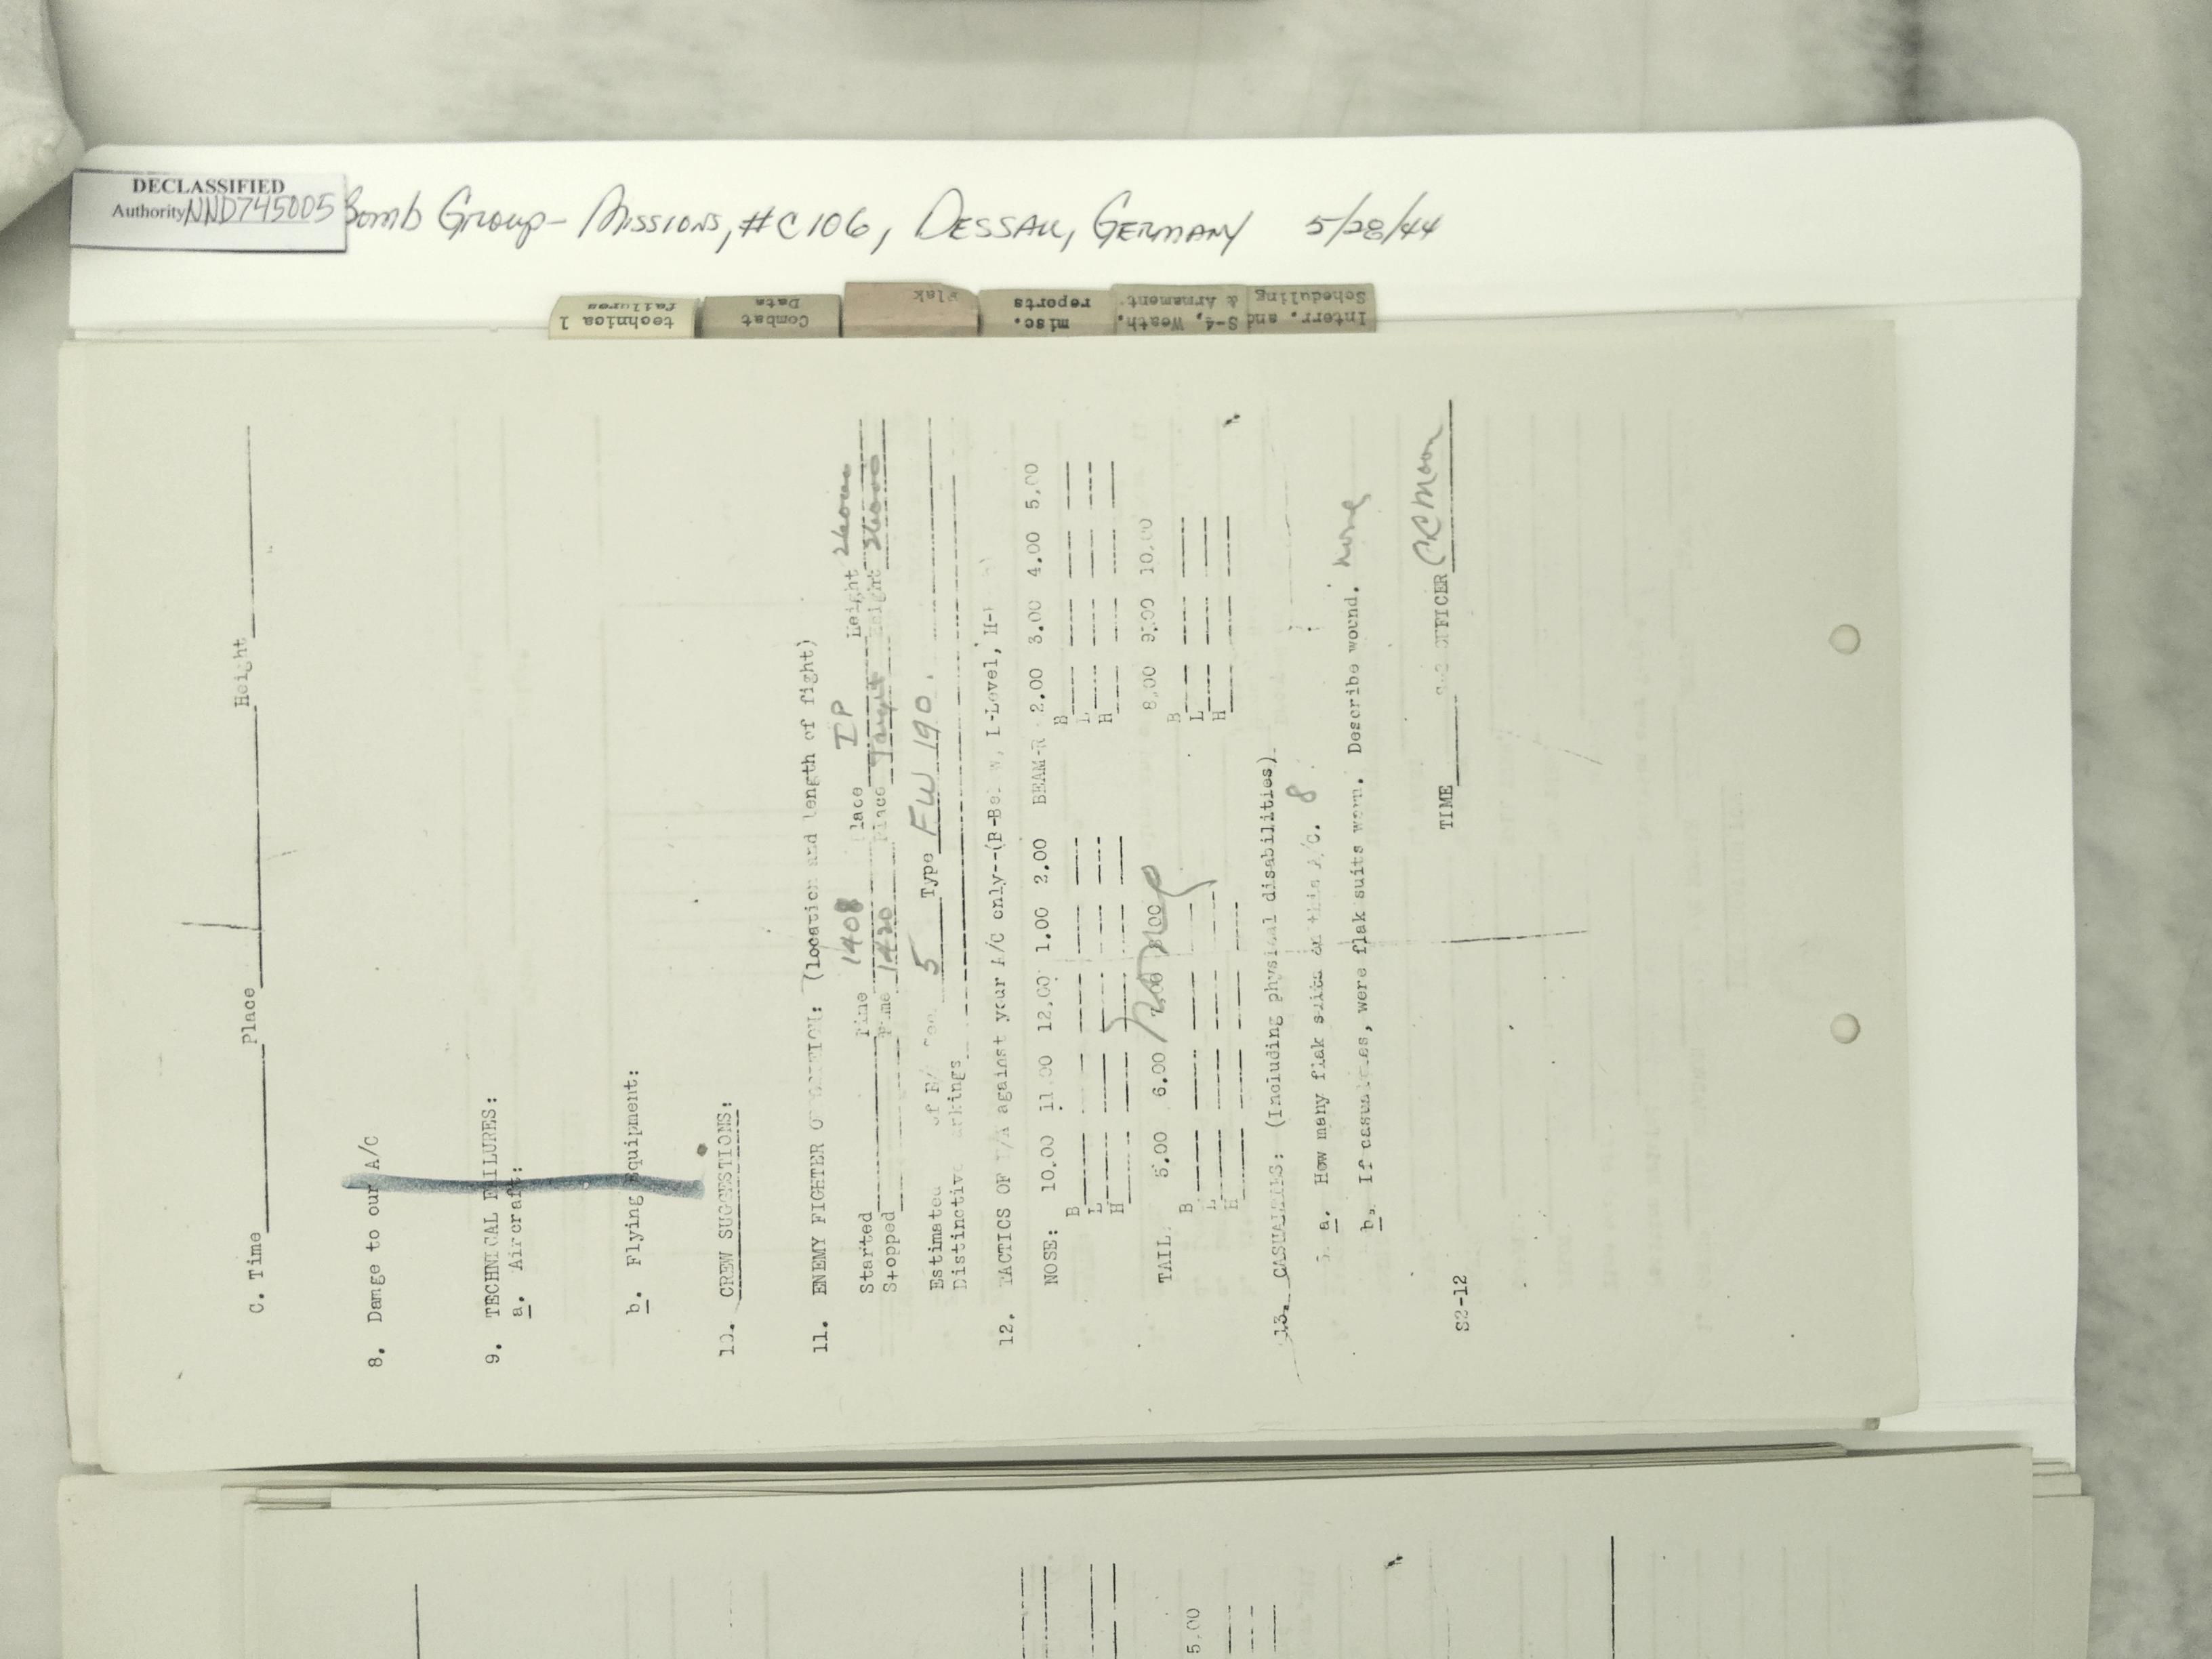 DECLASSIFIED
Authority NND745005
Bomb Group - Missions, #C106, Dessau, Germany 5/28/44
technical failures
Combat Data
Flak
misc. reports
S-4, Weath. & Armament.
Interr. and Scheduling
C. Time Place Height
8. Damage to our A/C
9. TECHNICAL FAILURES:
a. Aircraft:
b. Flying Equipment:
10. CREW SUGGESTIONS:
11. ENEMY FIGHTER OPPOSITION: (location and length of fight)
Started Time 1408 Place IP Height 26000
Stopped Time 1420 Place Target Height 26000
Estimated of E/A 5 Type FW 190.
Distinctive markings
12. TACTICS OF E/A against your A/C only--(B-Below, L-Level, H-
NOSE: 10.00 11.00 12.00 1.00 2.00 BEAM-R 2.00 3.00 4.00 5.00
B B
L L
H H
TAIL: 5.00 6.00 8.00 9.00 10.00
B B
L L
H H
13. CASUALTIES: (Including physical disabilities)
a. How many flak suits on this A/C. 8
b. If casualties, were flak suits worn. Describe wound. none
TIME S-2 OFFICER
S2-12
5.00